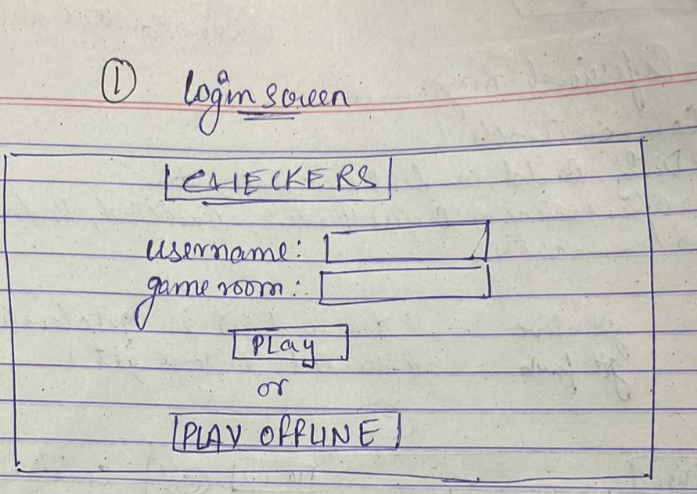 ① login screen
CHECKERS
username:
game room:
PLay
or
PLAY OFFLINE